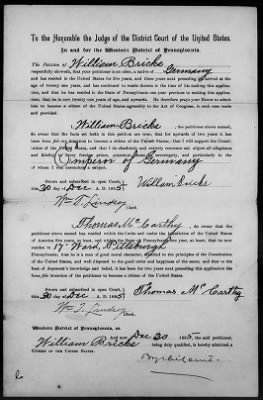 To the Honorable the Judge of the District Court of the United States.
In and for the Western District of Pennsylvania.
The Petition of William Bricks
respectfully sheweth, that your petitioner is an alien, a native of Germany
and has resided in the United States for five years, and three years next preceding
at the age of twenty one years, and has continued to reside therein to the time of his making this application,
that he has resided in the State of Pennsylvania one year previous to making this application,
that he is now twenty one years of age and upwards. He therefore prays your Honor to admit
him to become a citizen of the United States agreeably to the Act of Congress, in such case made
and provided.
William Bricks, the petitioner above named,
do swear that the facts set forth in this petition are true; that for upwards of two years it has
been bona fide my intention to become a citizen of the United States; that I will support the Constitution
of the United States, and that I do absolutely and entirely renounce and abjure all allegiance
and fidelity to every foreign prince, potentate, state or sovereignty, and particularly to the
Emperor of Germany
of whom I was heretofore a subject.
Sworn and subscribed in open Court,
this 30 day of Dec A. D. 1885
William Bricks
Wm T. Lindsey
Clerk.
Thomas McCarthy, do swear that the petitioner
above named has resided within the
United States for five years, and within the State of Pennsylvania one year, at least; that he now
resides in 17th Ward, Pittsburgh
Pennsylvania; that he is a man of good moral character, attached to the principles of the Constitution
of the United States, and well disposed to the good order and happiness of the same, and that to the
best of deponent's knowledge and belief, it has been for two years next preceding this application his
bona fide intention of the petitioner to become a citizen of the United States.
Sworn and subscribed in open Court,
this 30 day of Dec A. D. 1885
Thomas McCarthy
Wm T. Lindsey
Clerk.
Western District of Pennsylvania, ss.
And now Dec 30 1885, the said petitioner,
William Bricks being duly qualified, is admitted a
Citizen of the United States.
By the Court.